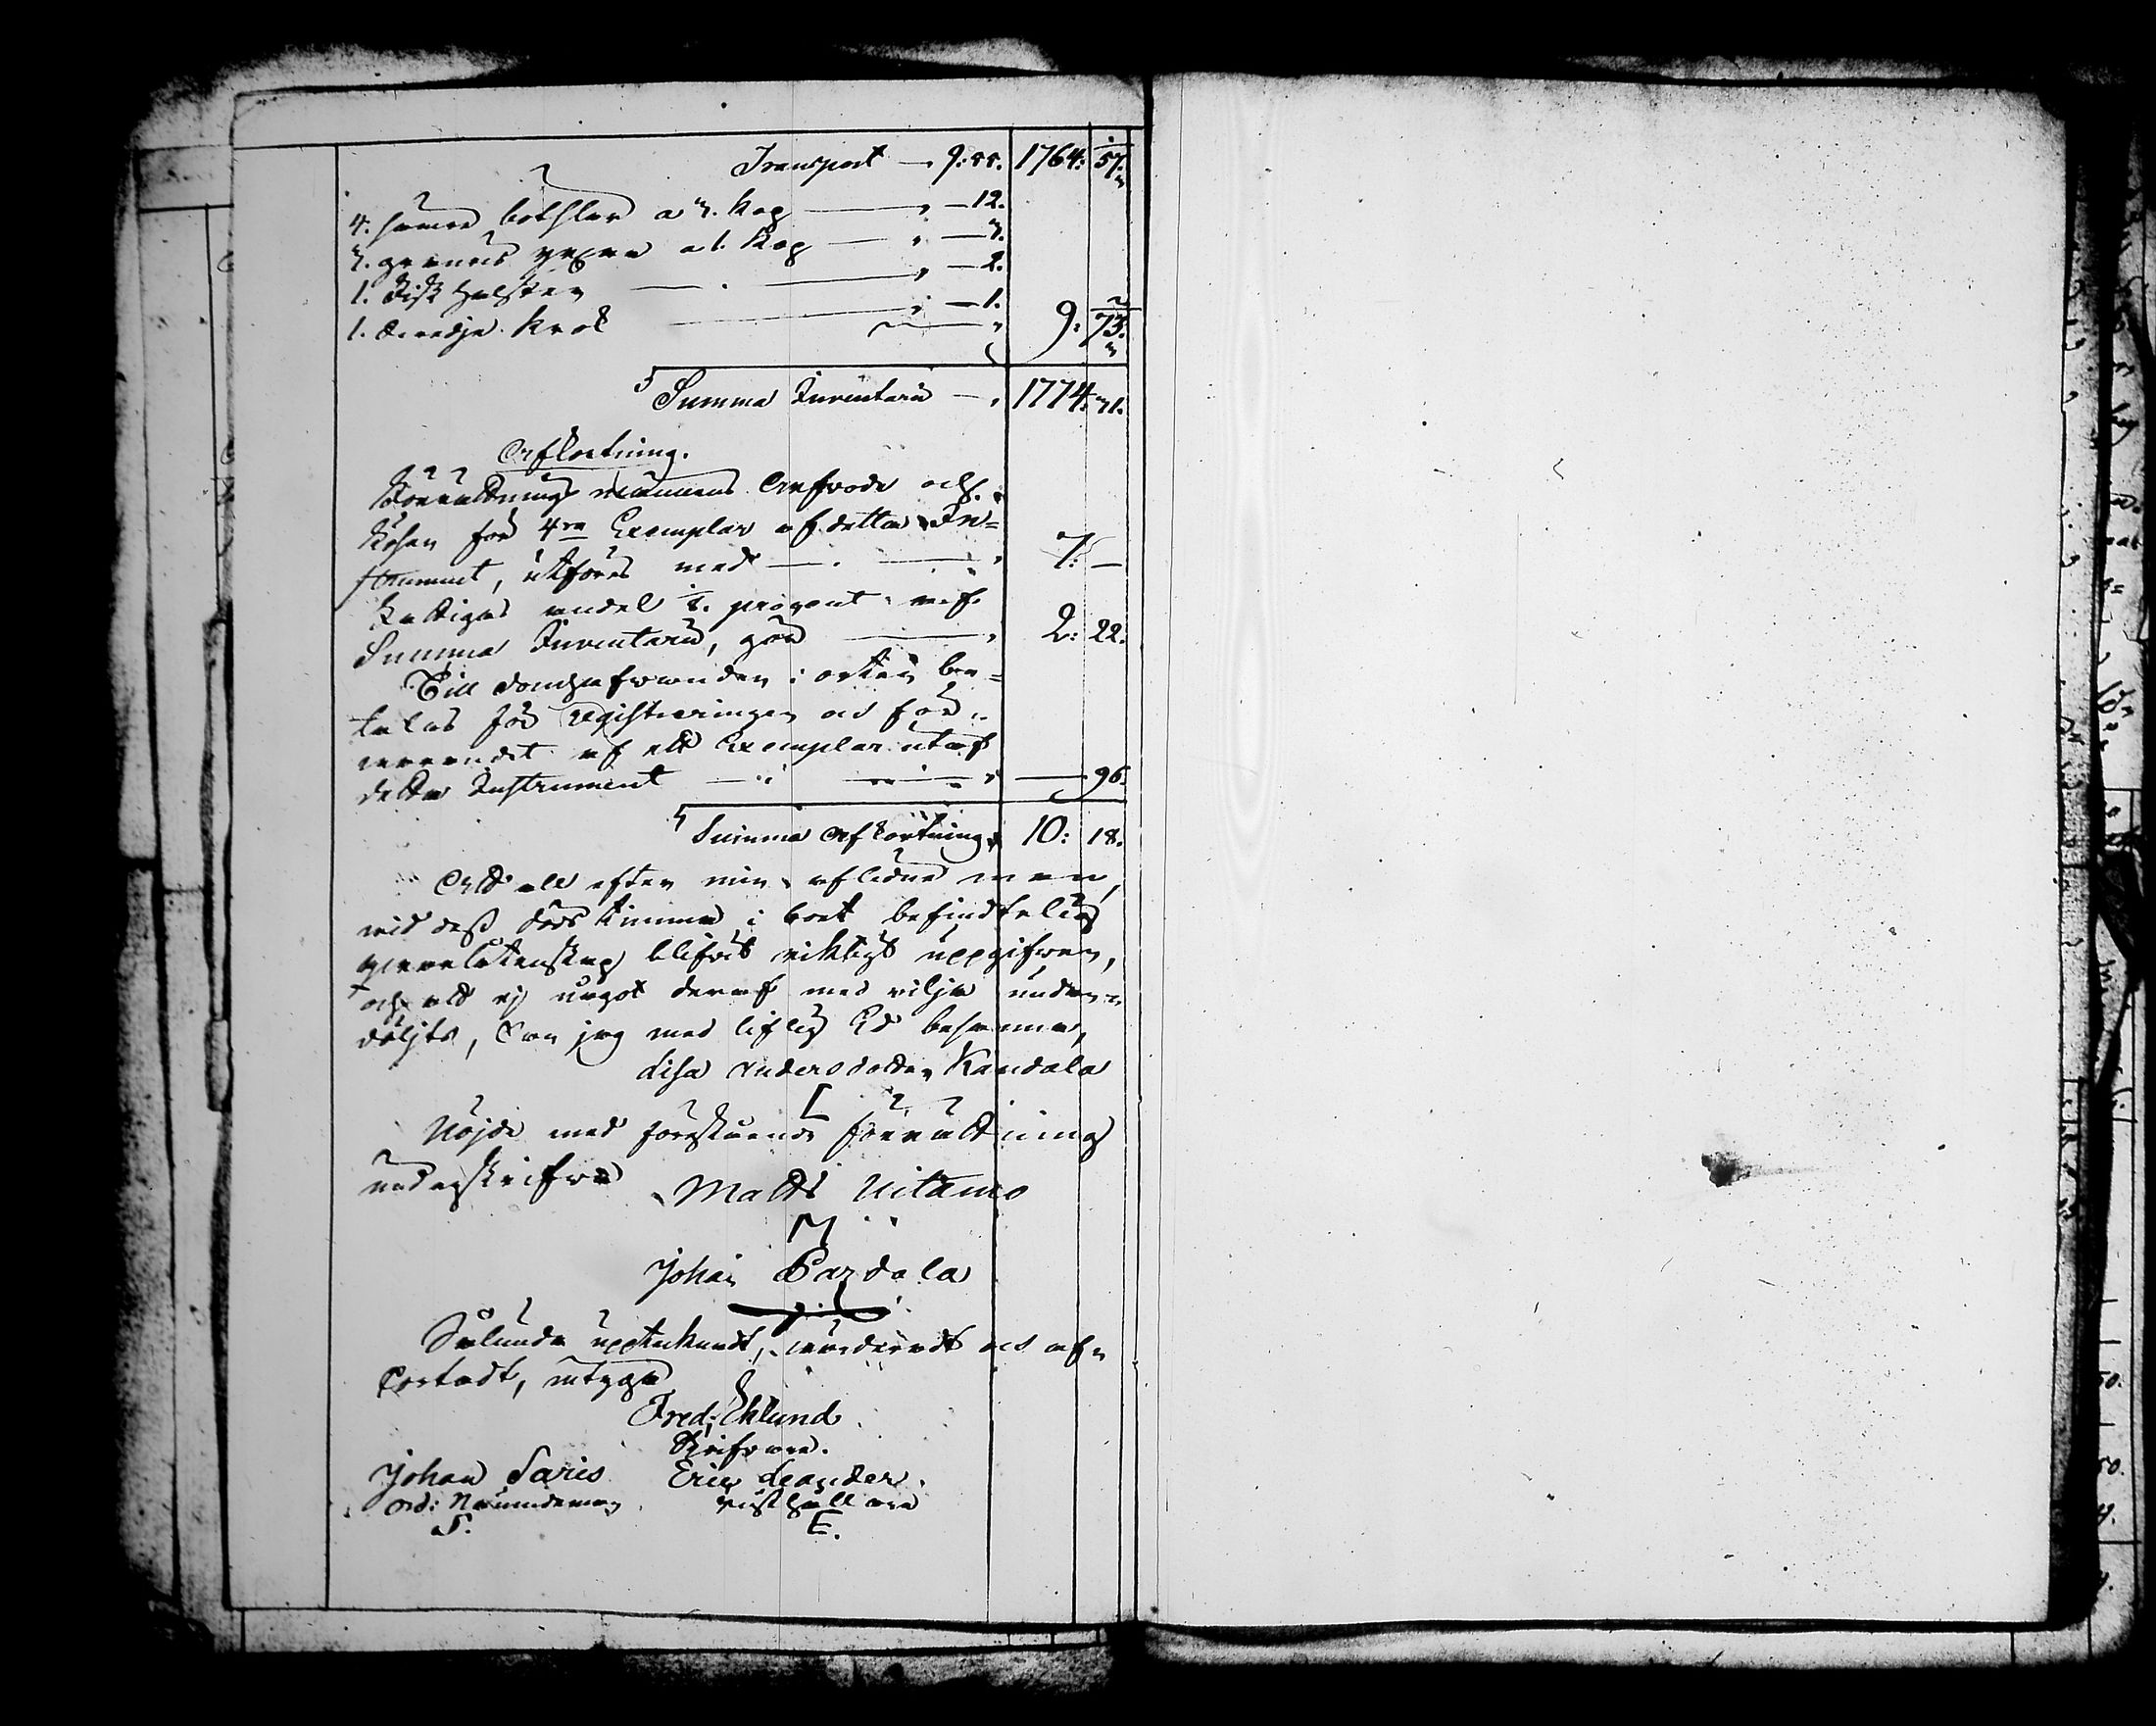 Transport — 9: 55. 1764: 57.
4. betslar a 3. kop — 12.
3. a 1. kop — 3.
1. Fisk — 2.
1. krok — 1.
9: 73.
Summa Inventarii — 1774: 31.
Afkortning.
Förrättnings männens Arfvode och
lösen för 4ra Exemplar af detta In=
strument, utföres med — 7: —
Fattigas andel ⅛. procent af
Summa Inventarii, gör — 2: 22.
Till domhafvanden i orten be=
talas för registreringen och för=
varandet af ett Exemplar utaf
detta Instrument — 96.
Summa Afkortning 10: 18.
Att all efter min aflidne man,
vid dess döds timma i boet befindtelig
qvarlåtenskap blifvit riktigt uppgifven,
och att ej något deraf med vilja undan=
döljts, kan jag med liflig Ed besanna,
Lisa Andersdotter Kandola
L
Nöjde med förestående förrättning
underskrifva Matts Uitamo
M
Johan Pardala
Sålunda upptecknadt, värderadt och af=
kortadt, intyga
Fred: Eklund
Skrifvare.
Johan Saris Eric Leander.
Ord: Nämndeman Rusthållare
S. E.